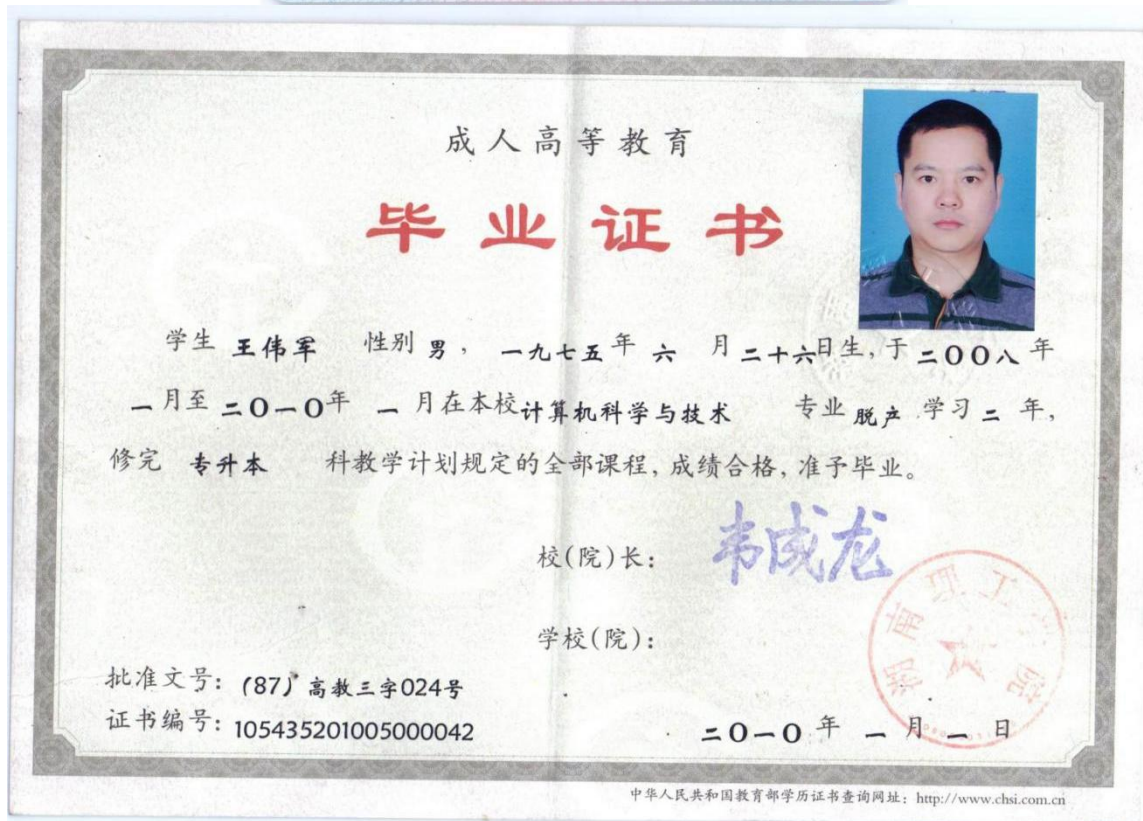 成人高等教育
毕业证书
学生 王伟军 性别 男， 一九七五年 六 月 二十六日生，于 二OO八 年
一 月至 二O一O年 一 月在本校计算机科学与技术 专业 脱产 学习 二 年，
修完 专升本 科教学计划规定的全部课程，成绩合格，准予毕业。
校(院)长： 韦成龙
学校(院)：
湖南理工学院
批准文号：(87) 高教三字024号
证书编号：105435201005000042
二O一O 年 一 月 一 日
中华人民共和国教育部学历证书查询网址：http://www.chsi.com.cn